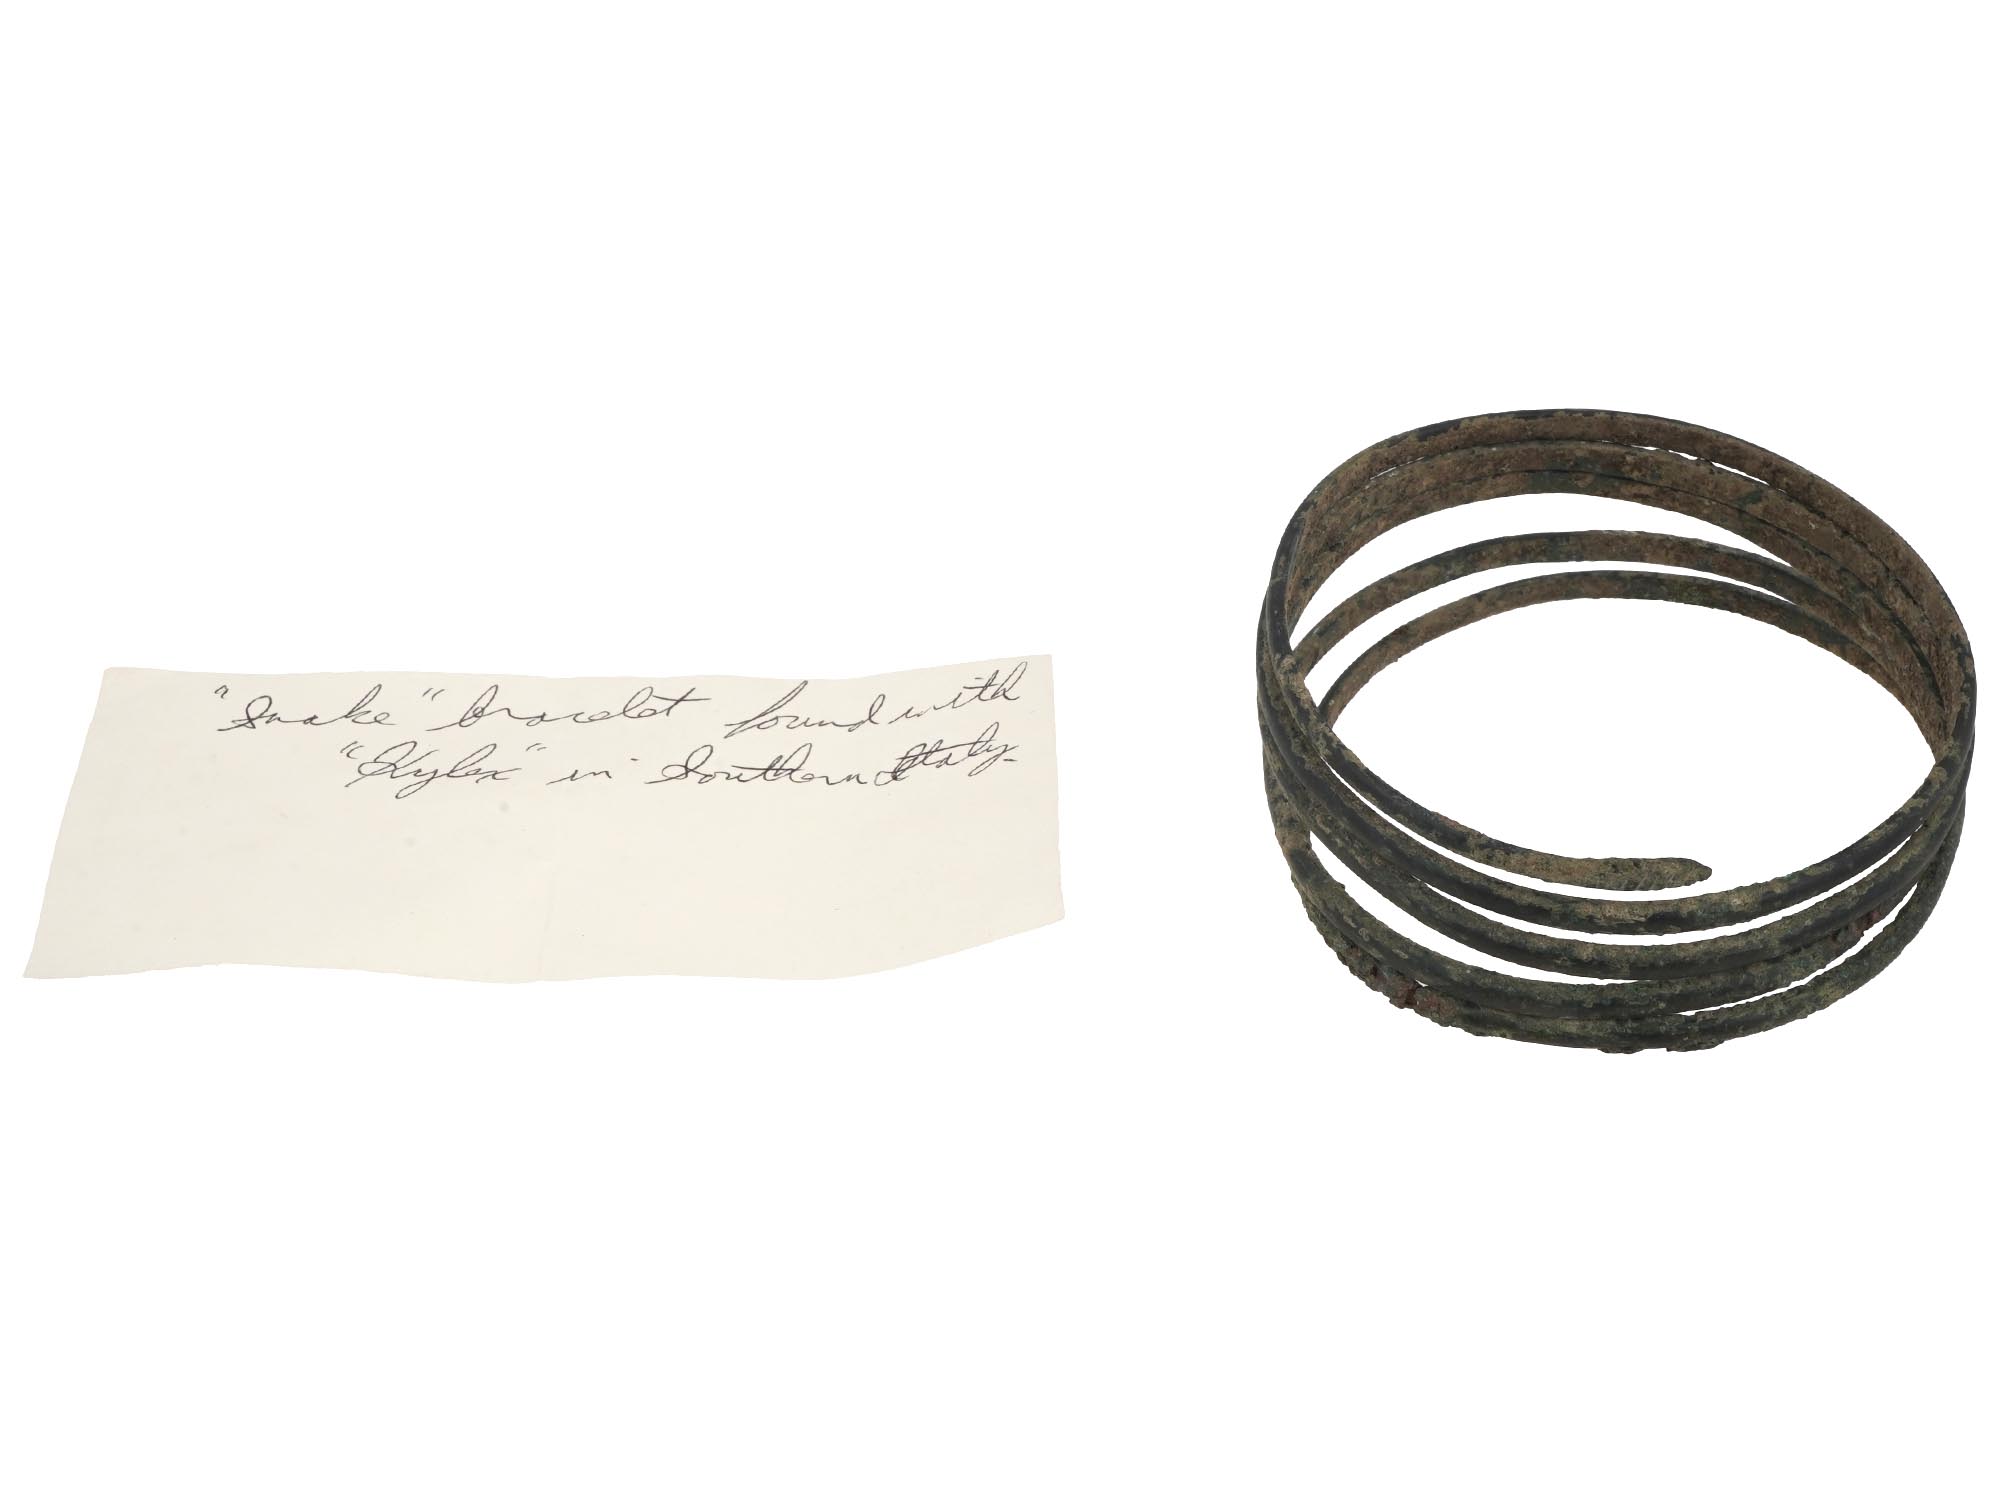 "Snake" bracelet found with
"Kylex" in Southern Italy.